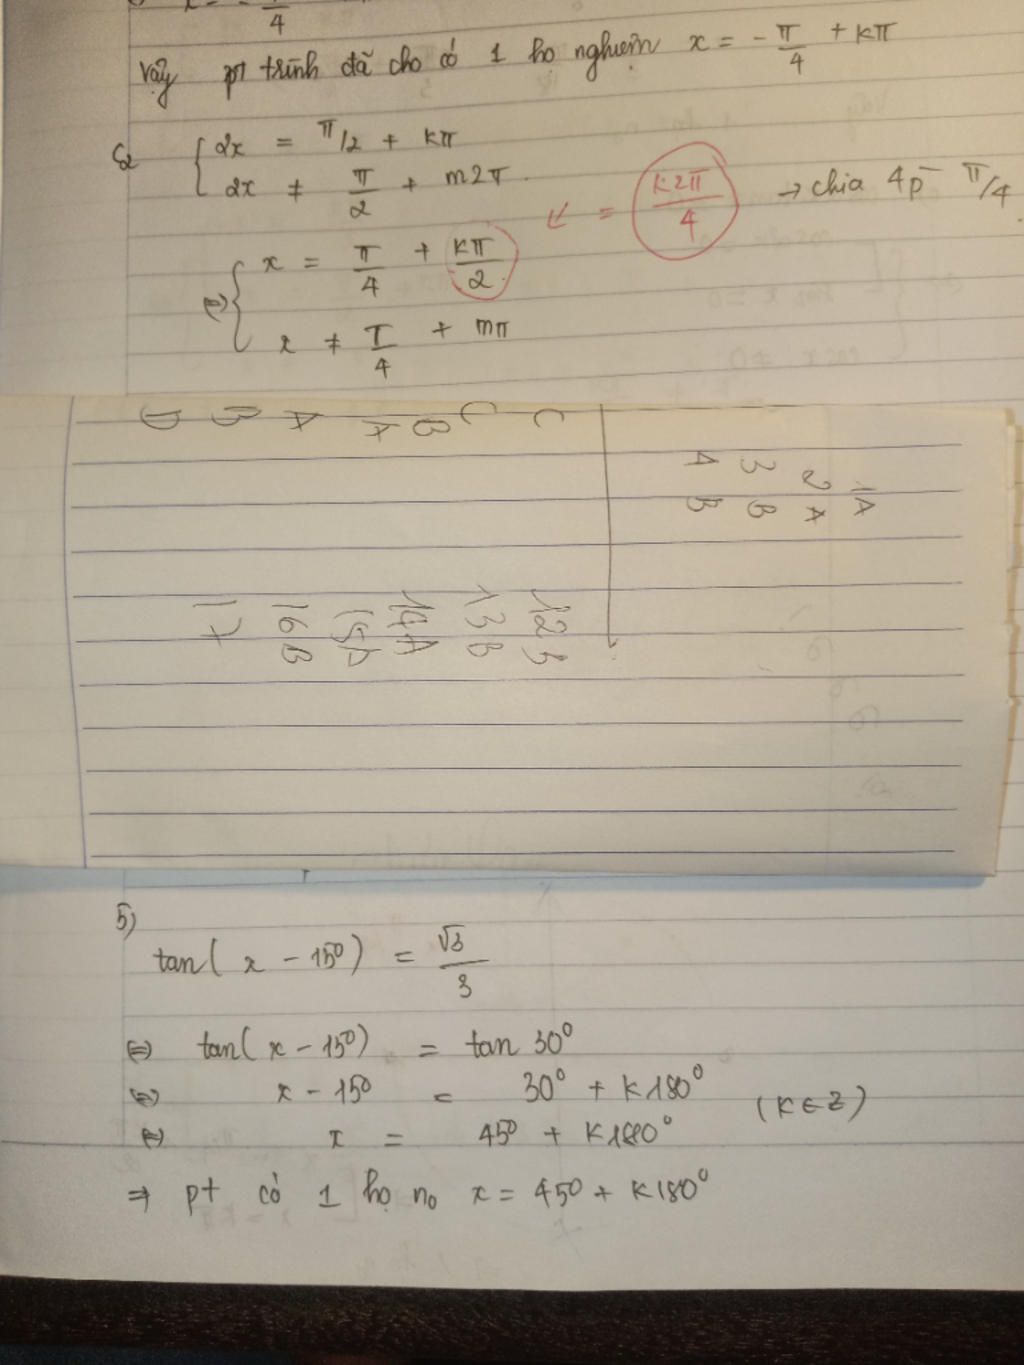 π/4
Vậy pt trình đã cho có 1 họ nghiệm x = - π/4 + kπ
C2 { 2x = π/2 + kπ
2x ≠ π/2 + m2π
= k2π/4 → chia 4p π/4
⇔ { x = π/4 + kπ/2
x ≠ π/4 + mπ
1A
2 A
3 B
4 B
C
C
B
A
A
B
D
12B
13B
14A
15A
16B
17
5)
tan(x - 15°) = √3/3
⇔ tan(x - 15°) = tan 30°
⇔ x - 15° = 30° + k180° (k∈Z)
⇔ x = 45° + k180°
⇒ pt có 1 họ no x = 45° + k180°